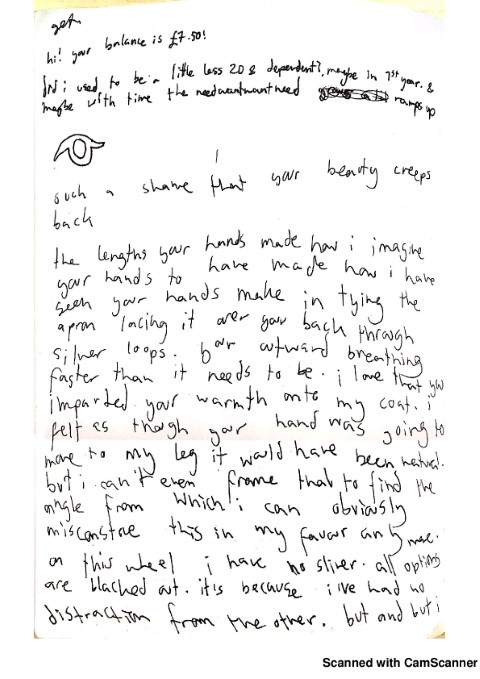 get
hi! your balance is £7.50!
i used to be a little less 20 & dependent?, maybe in 1st year. &
maybe with time the needwantwantneed ramps up
such a shame that your beauty creeps
back
the lengths your hands made how i imagine
your hands to have made how i have
seen your hands make in tying the
apron lacing it over your back through
silver loops. our outward breathing
faster than it needs to be. i love that you
imparted your warmth onto my coat. i
felt as though your hand was going to
move to my leg it would have been natural.
but i can't even frame that to find the
angle from which i can obviously
misconstrue this in my favour any more.
on this wheel i have no sliver. all options
are blacked out. it's because i've had no
distraction from the other. but and but i
Scanned with CamScanner